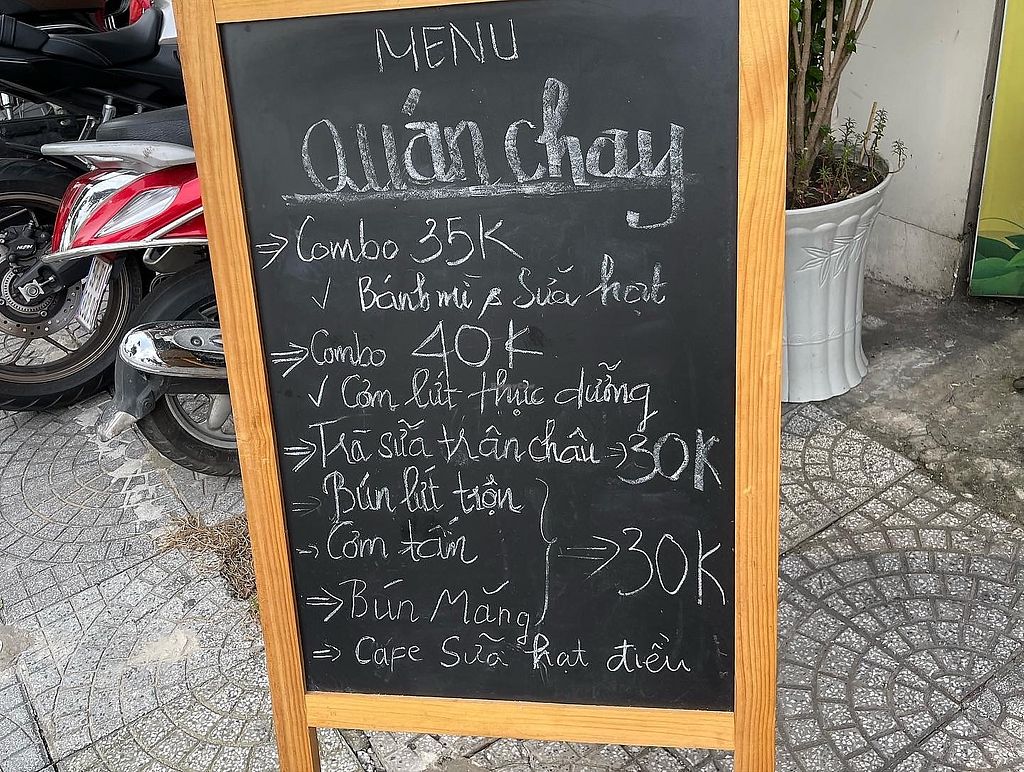 MENU
Quán chay
⇒ Combo 35K
✓ Bánh mì & Sữa hạt
⇒ Combo 40K
✓ Cơm lứt thực dưỡng
⇒ Trà sữa trân châu → 30K
⇒ Bún lứt trộn
→ Cơm tấm
⇒ 30K
⇒ Bún Măng
⇒ Cafe Sữa hạt điều